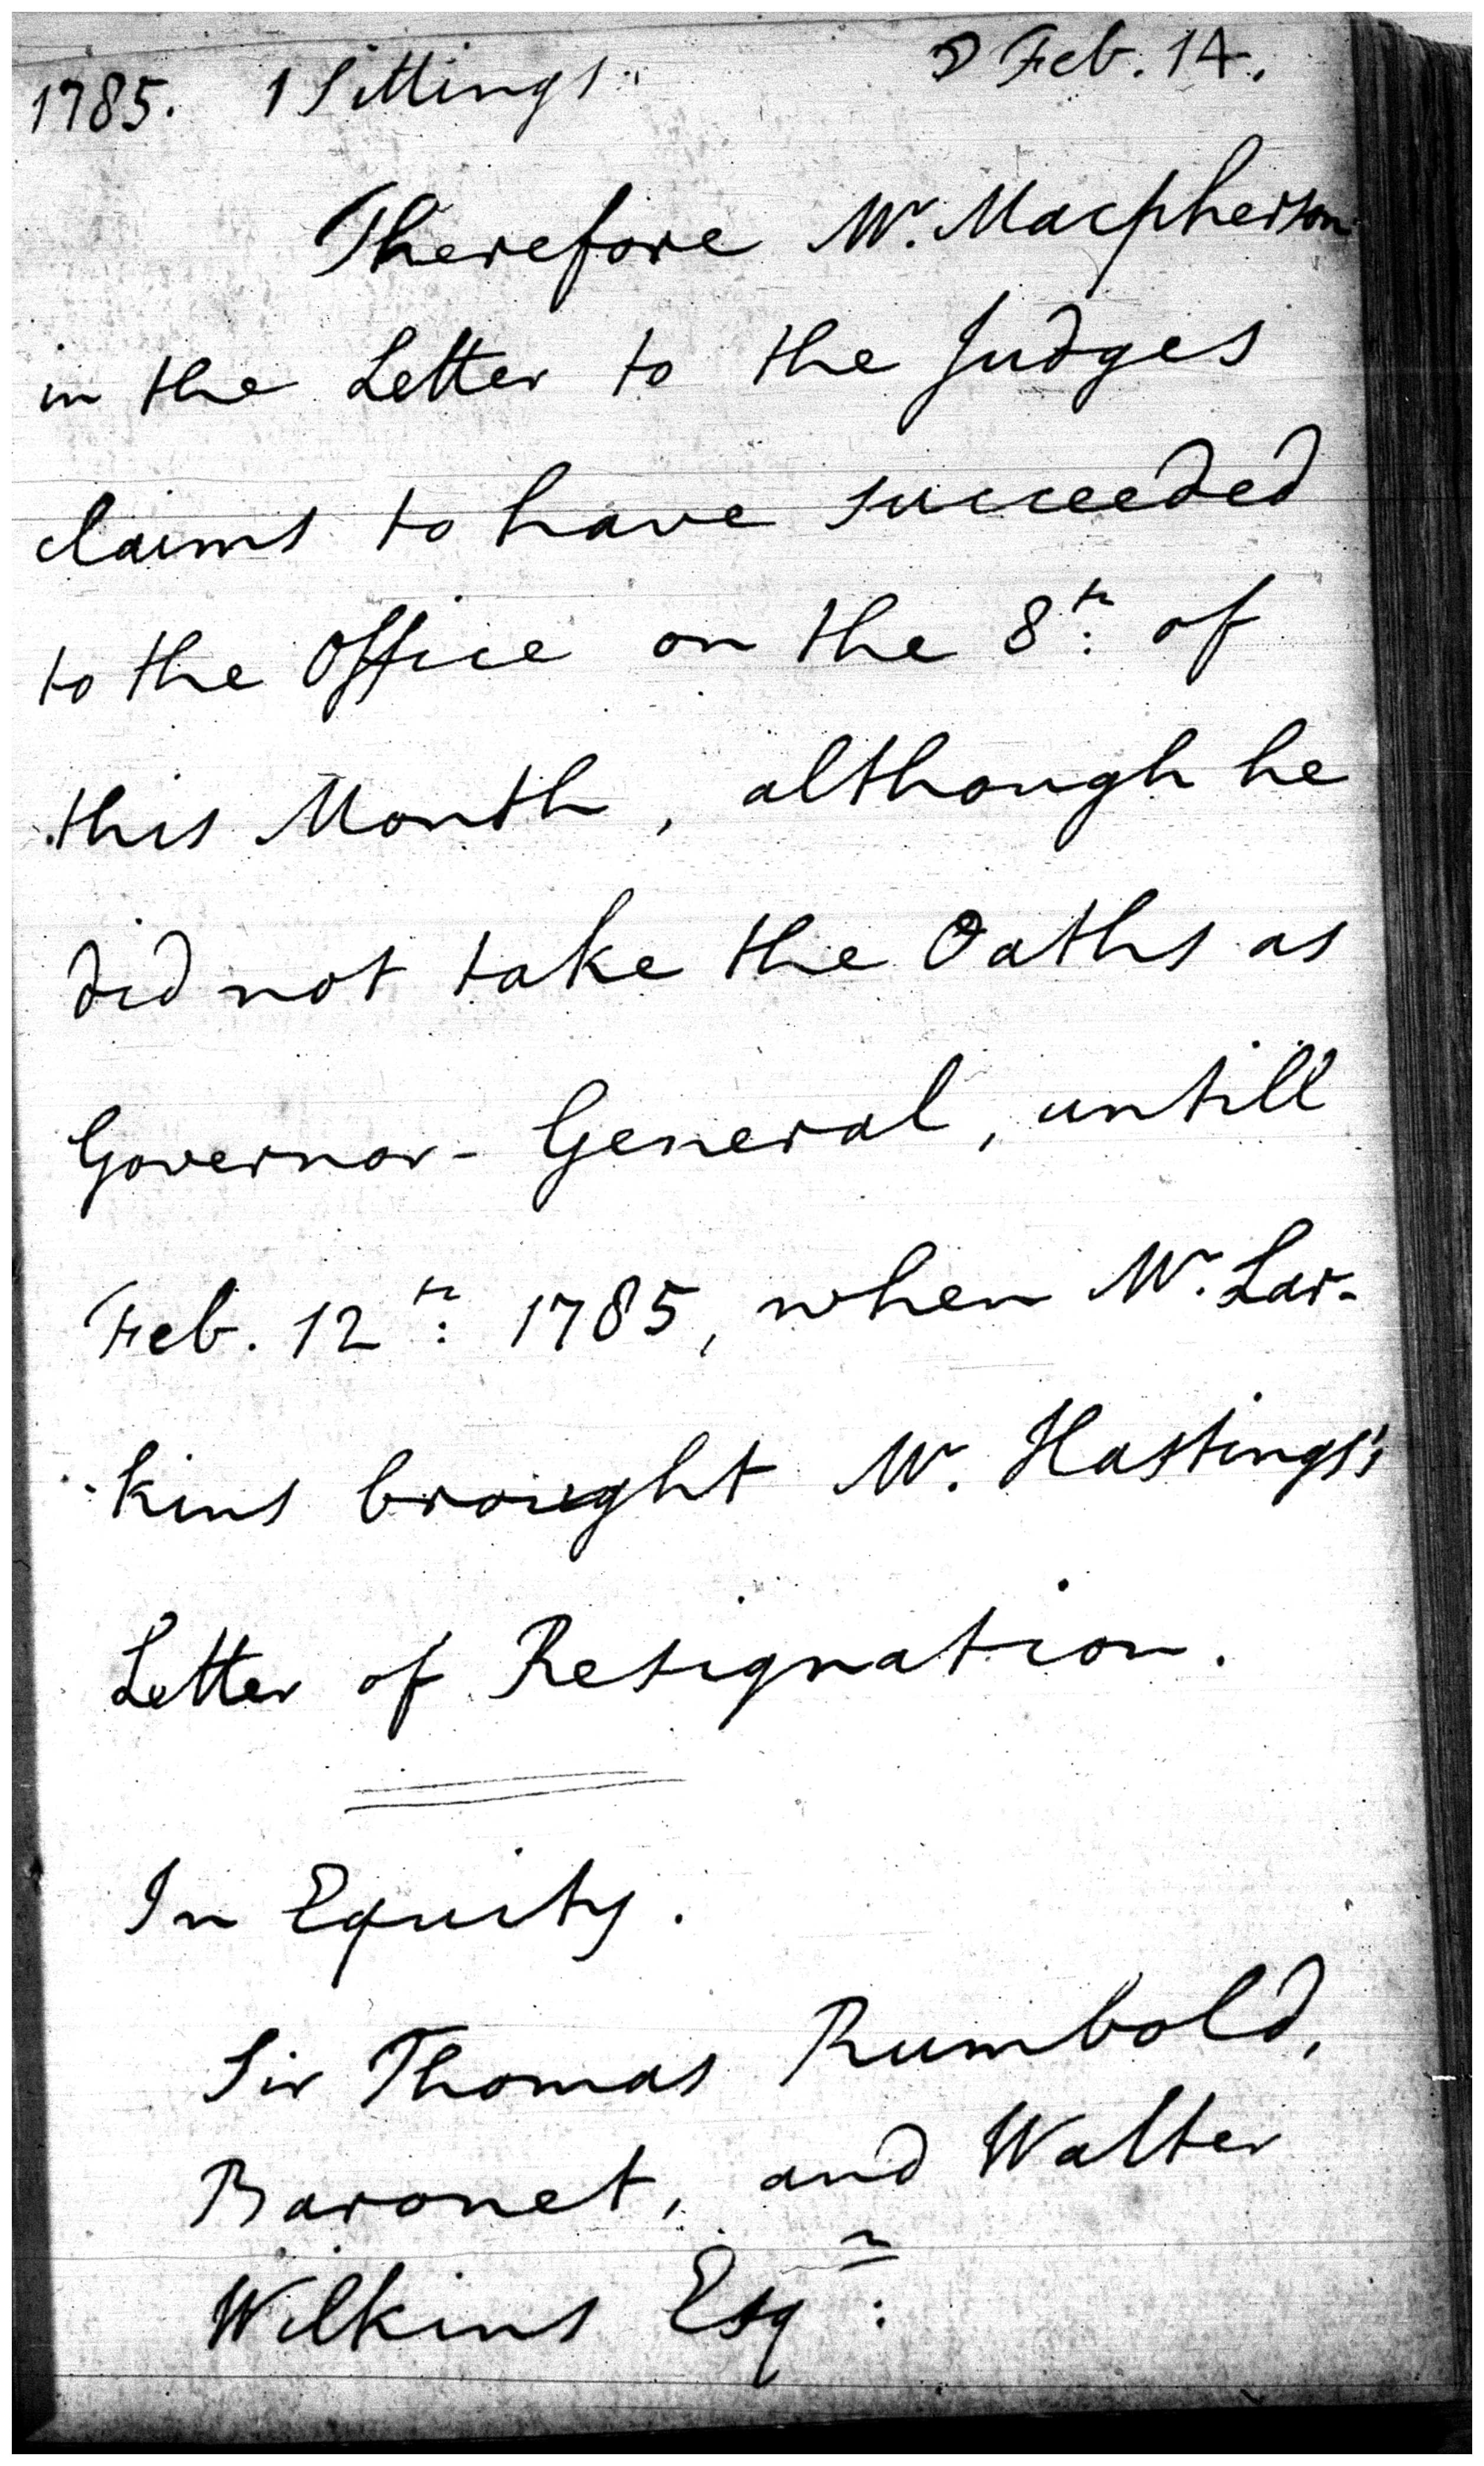 1785. 1 Sittings. ☽ Feb. 14.
Therefore Mr. Macpherson
in the Letter to the Judges
claims to have succeeded
to the Office on the 8th: of
this Month, although he
did not take the Oaths as
Governor-General, untill
Feb. 12th: 1785, when Mr. Lar-
kins brought Mr. Hastings's
Letter of Resignation.
In Equity.
Sir Thomas Rumbold,
Baronet, and Walter
Wilkins Esqr: